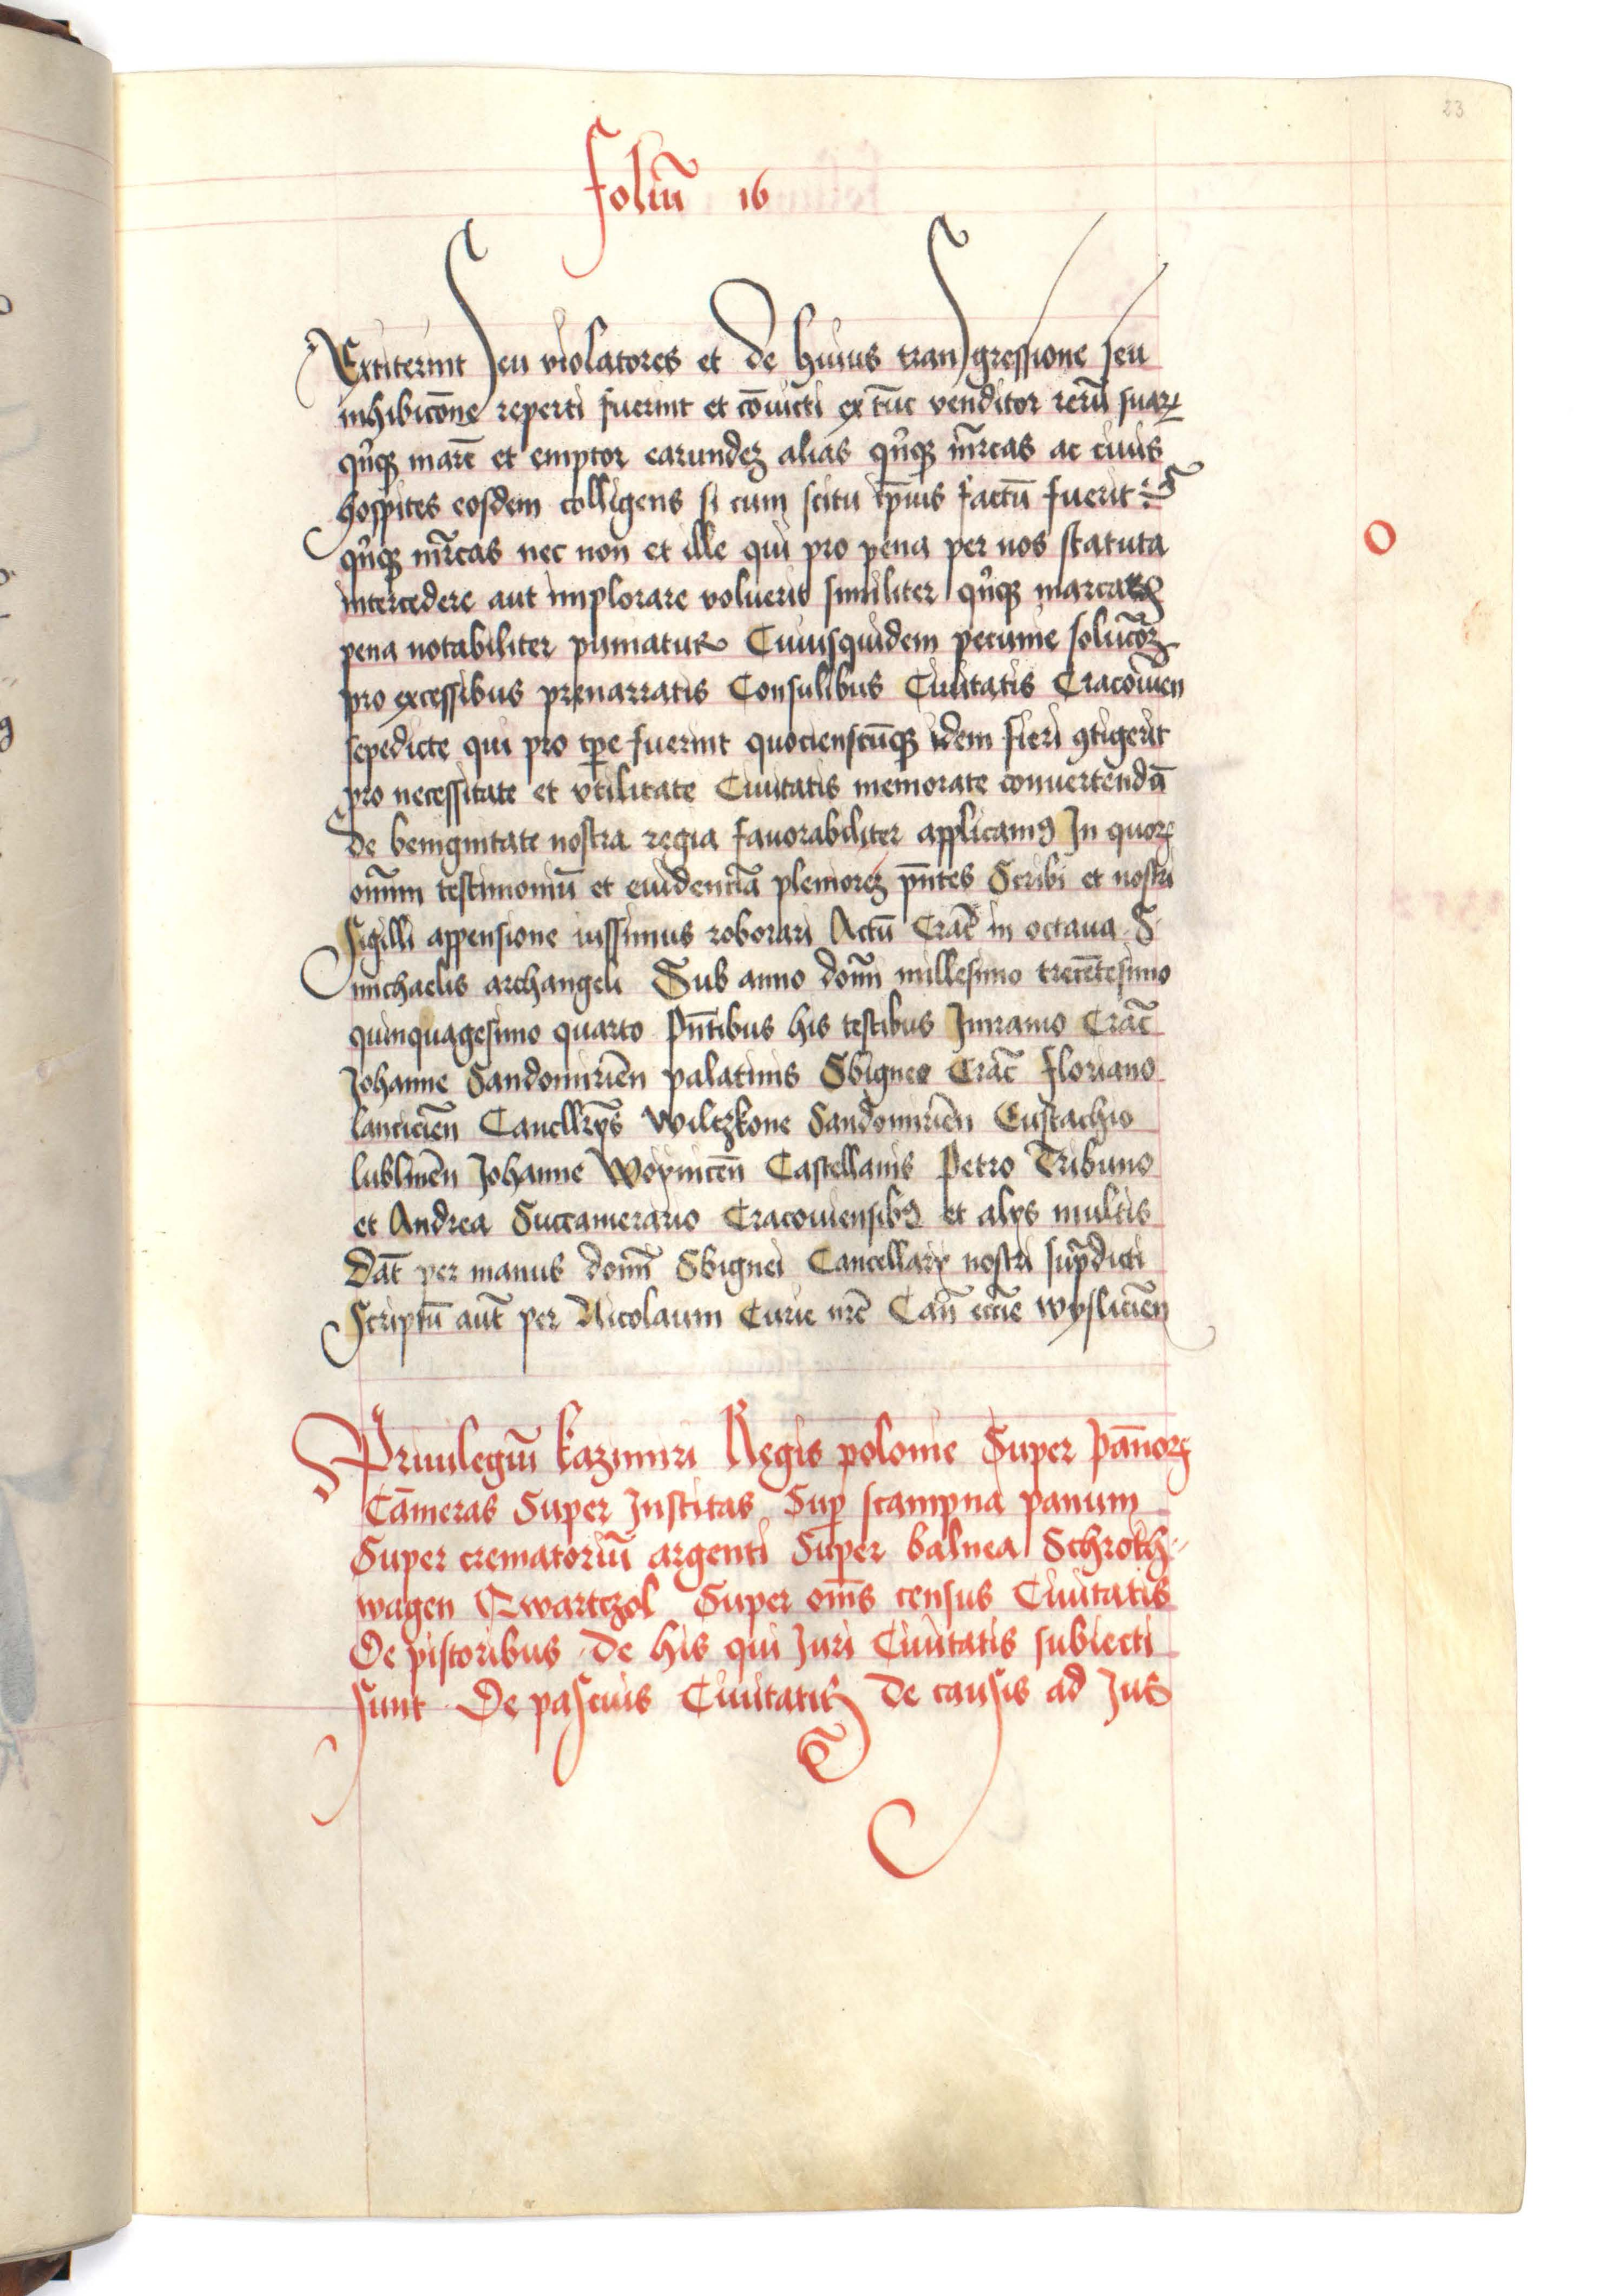 23
foliū 16
Extiterint seu violatores et de huius transgressione seu
inhibicōne reperti fuerint et cōuicti ex tūc venditor rerū suaꝝ
qn̄qꝫ marc̄ et emptor earundeꝫ alias qn̄qꝫ mr̄cas ac ciuis
hospites eosdem colligens si cum scitu ip̄ius factū fuerit
qn̄qꝫ mr̄cas nec non et ille qui pro pena per nos statuta
intercedere aut implorare voluerit similiter qn̄qꝫ marcarꝫ
pena notabiliter puniatur Cuiusquidem pecunie solucōeꝫ
pro excessibus prenarratis Consulibus Ciuitatis Cracouien̄
sepedicte qui pro tp̄e fuerint quocienscūqꝫ idem fieri ꝯtigerit
pro necessitate et vtilitate Ciuitatis memorate conuertendā
de benignitate nostra regia fauorabiliter applicamꝰ In quoꝝ
omīum testimoniū et euidenciā plenioreꝫ pn̄tes Scribi et nostri
Sigilli appensione iussimus roborari Actū Crac̄ in octaua S
michaelis archangeli Sub anno domī millesimo trecētesimo
quinquagesimo quarto Pn̄tibus his testibus Imramo Crac̄
Johanne Sandomirien̄ palatinis Sbigneo Crac̄ floriano
lancicien̄ Cancellr̄ys Wilczkone Sandomirien̄ Eustachio
lublinen̄ Johanne Woynicen̄ Castellanis Petro Tribuno
et Andrea Succamerario Cracouiensibꝰ et alys multis
Dat̄ per manus domī Sbignei Cancellary nostri sup̄dicti
Scriptū aut̄ per Nicolaum Curie nr̄e Can̄ ecc̄ie wyslicien̄
Priuilegiū kazimiri Regis polonie Super pan̄oꝝ
Cāmeras Super Institas Suꝑ scampna panum
Super crematoriū argenti Super balnea Schroth
wagen Qwartczol Super om̄s census Ciuitatis
De pistoribus De his qui Juri Ciuitatis subiecti
sunt De pascuis Ciuitatis De causis ad Jus
O